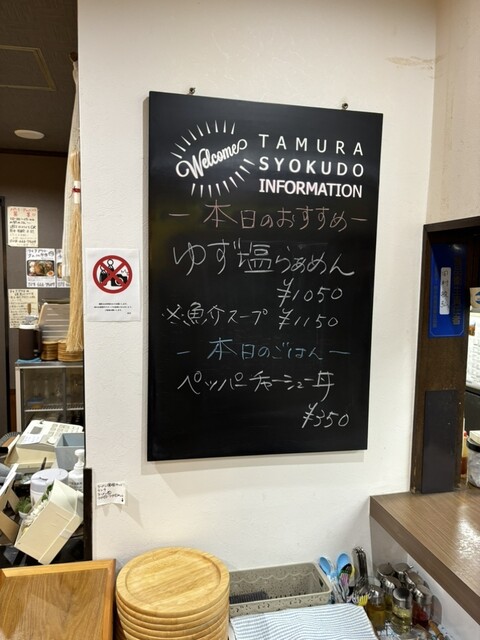 Welcome
TAMURA
SYOKUDO
INFORMATION
— 本日のおすすめ —
ゆず塩らぁめん
¥1050
※魚介スープ ¥1150
— 本日のごはん —
ペッパーチャーシュー丼
¥350